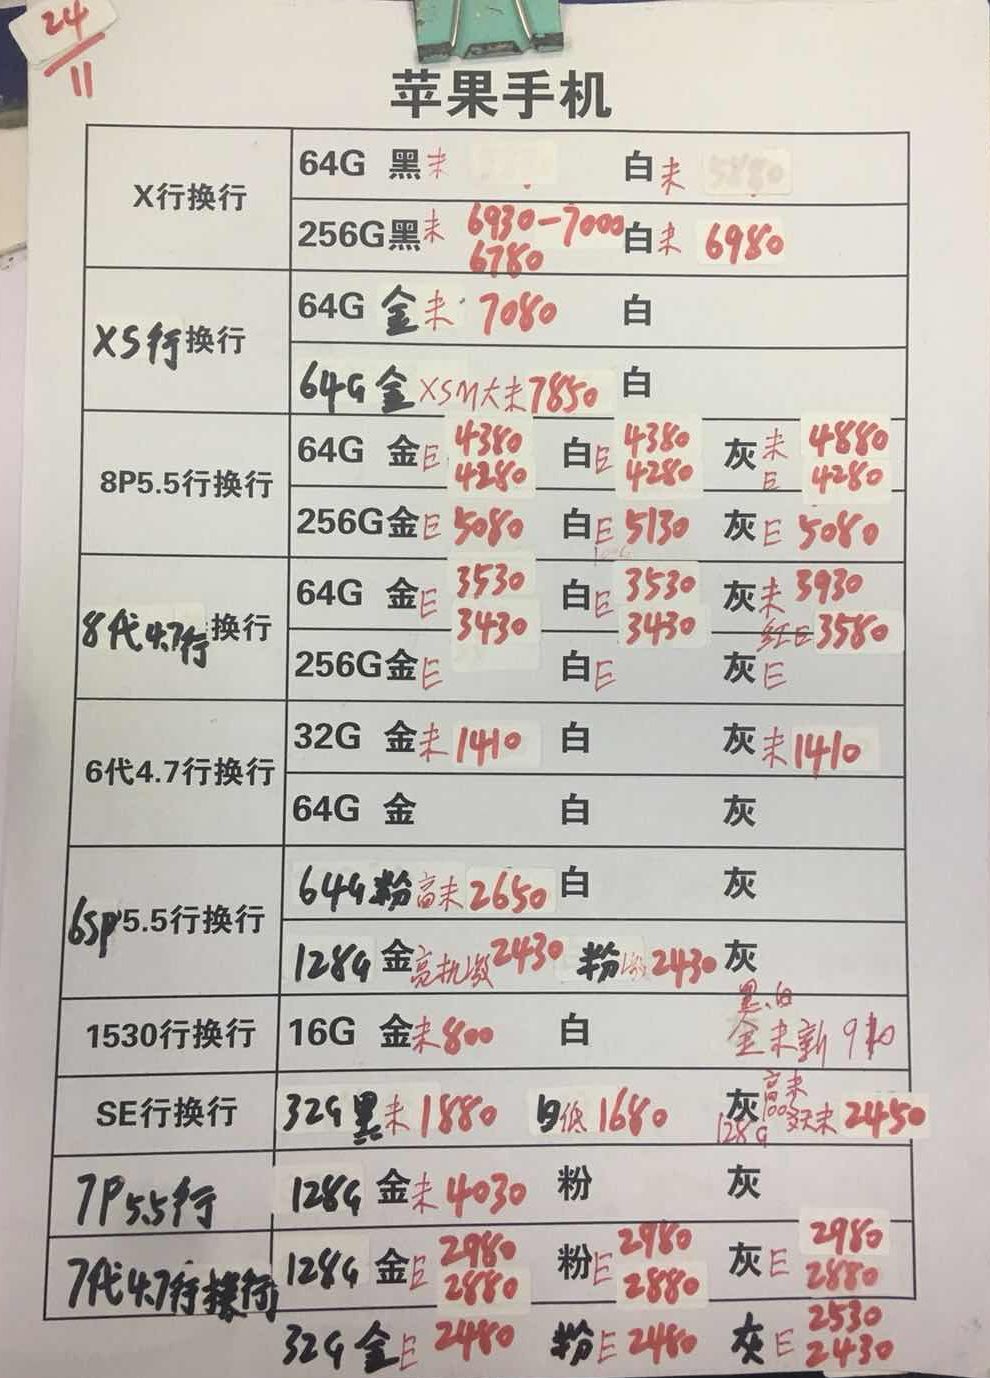 24
11
苹果手机
X行换行
64G 黑未 白未 5880
256G黑未 6930-7000 白未 6980
6780
XS行换行
64G 金未 7080 白
64G 金 XSM大未7850 白
8P5.5行换行
64G 金E 4380 白E 4380 灰未 4880
4280 4280 E 4280
256G金E 5080 白E 5130 灰E 5080
8代4.7行换行
64G 金E 3530 白E 3530 灰未 3930
3430 3430 红E 3580
256G金E 白E 灰E
6代4.7行换行
32G 金未 1410 白 灰未 1410
64G 金 白 灰
6sp5.5行换行
64G 粉高未 2650 白 灰
128G 金高机激 2430 粉激 2430 灰
1530行换行
黑、白
16G 金未800 白 金未新
SE行换行
高未
32G 黑未 1880 白低 1680 灰 2450
128G
7P5.5行
128G 金未 4030 粉 灰
7代4.7行换行
128G 金E 2980 粉E 2980 灰E 2980
2880 2880 2880
32G 金E 2480 粉E 2480 灰E 2530
2430